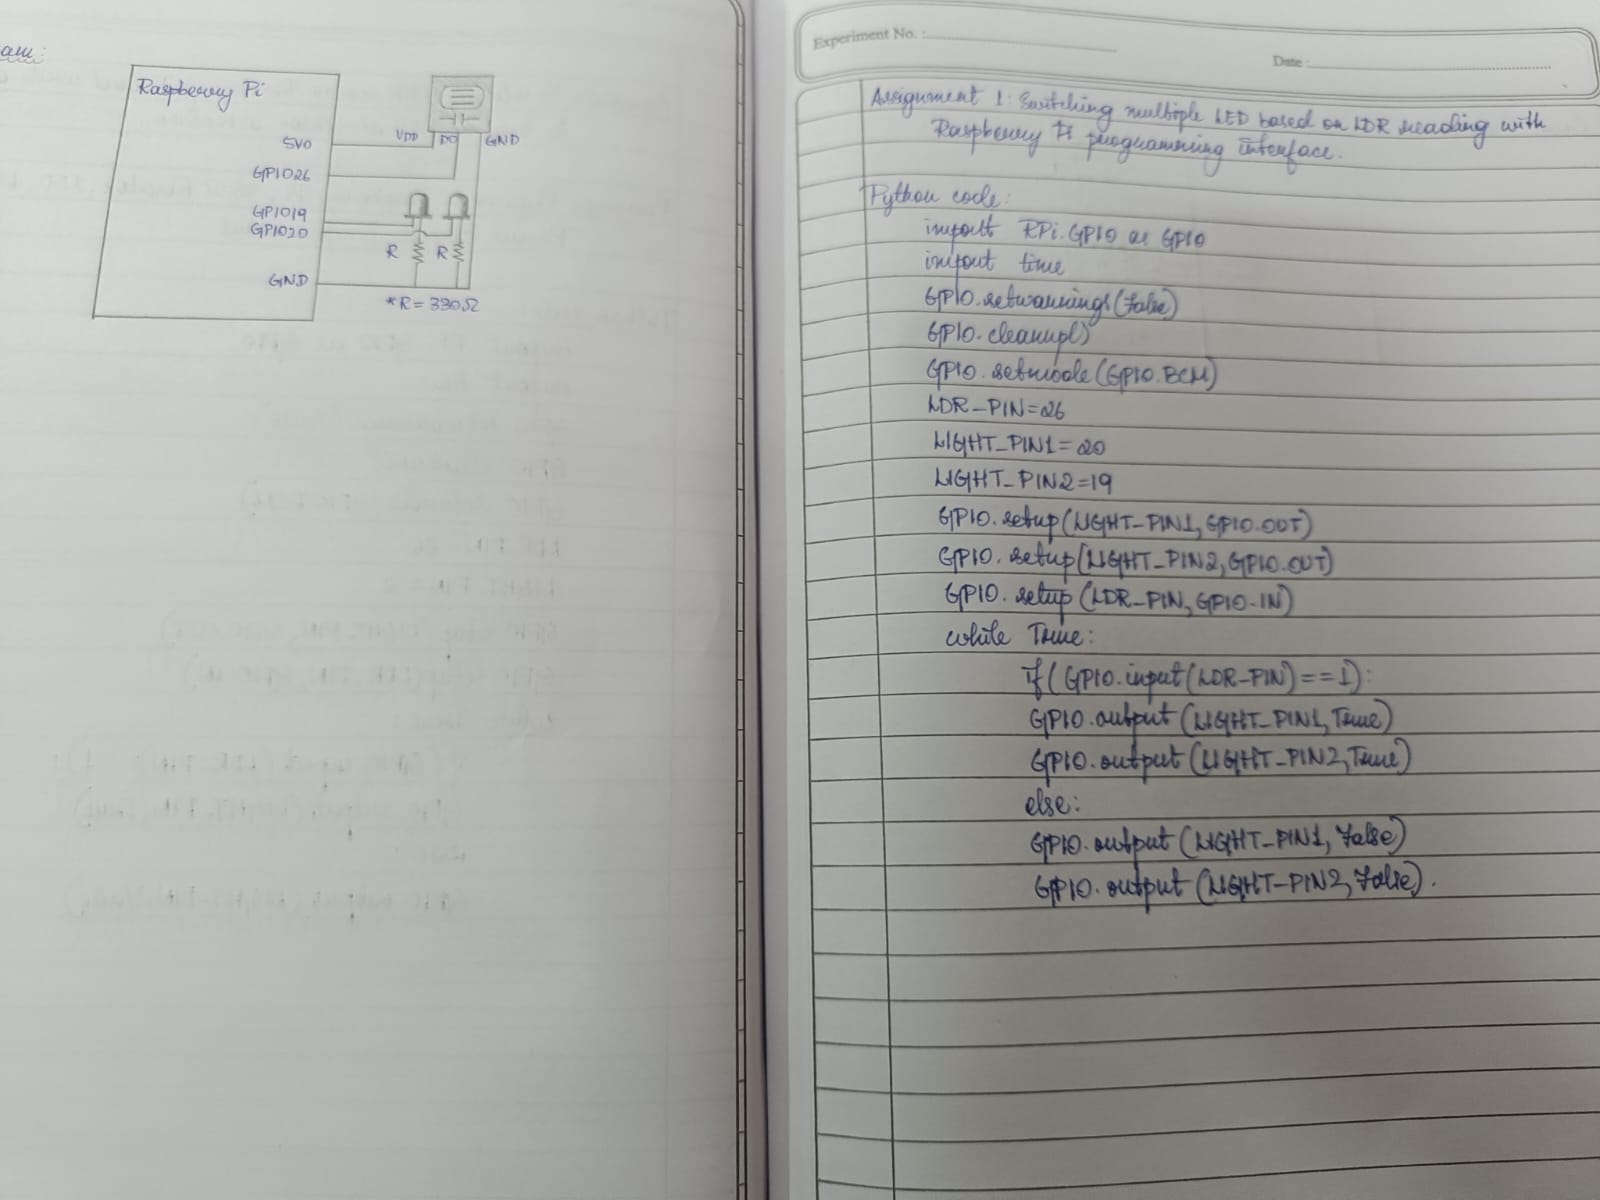 am:
Raspberry Pi
5V0
GPIO26
GPIO19
GPIO20
GND
VDD
DO
GND
R
R
*R = 330Ω
Experiment No. :
Date :
Assignment 1: Switching multiple LED based on LDR reading with
Raspberry Pi programming interface.
Python code:
import RPi.GPIO as GPIO
import time
GPIO.setwarnings(False)
GPIO.cleanup()
GPIO.setmode(GPIO.BCM)
LDR_PIN=26
LIGHT_PIN1=20
LIGHT_PIN2=19
GPIO.setup(LIGHT_PIN1, GPIO.OUT)
GPIO.setup(LIGHT_PIN2, GPIO.OUT)
GPIO.setup(LDR_PIN, GPIO.IN)
while True:
if(GPIO.input(LDR_PIN)==1):
GPIO.output(LIGHT_PIN1, True)
GPIO.output(LIGHT_PIN2, True)
else:
GPIO.output(LIGHT_PIN1, False)
GPIO.output(LIGHT_PIN2, False).